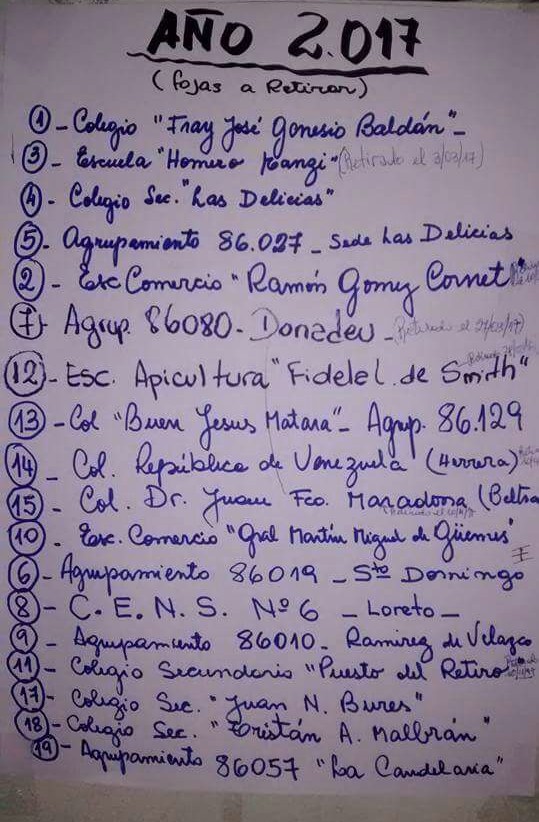 AÑO 2.017
(fojas a Retirar)
1 - Colegio "Fray José Genesio Baldán" -
3 - Escuela "Homero Manzi" (Retirado el 3/03/17)
4 - Colegio Sec. "Las Delicias"
5 - Agrupamiento 86.027 - Sede Las Delicias
2 - Esc Comercio "Ramón Gomez Cornet"
7 - Agrup. 86080 - Donadeu - (Retirado el 27/03/17)
12 - Esc. Apicultura "Fidelel de Smith"
13 - Col "Buen Jesus Matara" - Agrup. 86.129
14 - Col. República de Venezuela (Herrera)
15 - Col. Dr. Juan Fco. Maradona (Beltra
10 - Esc. Comercio "Gral Martín Miguel de Güemes"
6 - Agrupamiento 86019 - Sto Domingo
8 - C. E. N. S. Nº 6 - Loreto -
9 - Agrupamiento 86010 - Ramirez de Velazco
11 - Colegio Secundario "Puesto del Retiro"
17 - Colegio Sec. "Juan N. Bures"
18 - Colegio Sec. "Tristán A. Malbrán"
19 - Agrupamiento 86057 "La Candelaria"